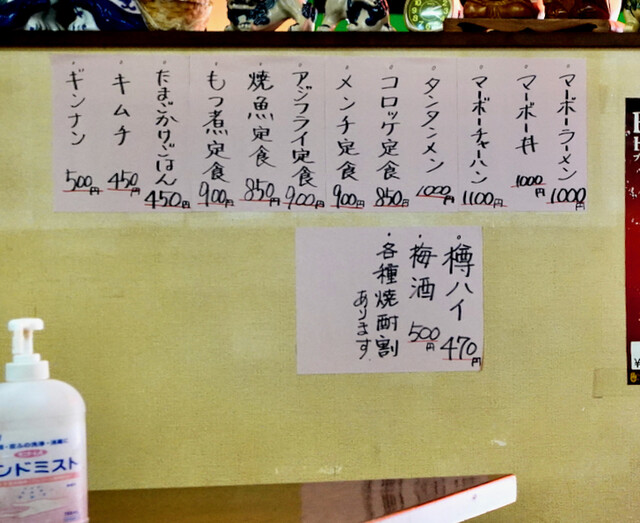 マーボーラーメン 1000円
マーボー丼 1000円
マーボーチャーハン 1100円
タンタンメン 1000円
コロッケ定食 850円
メンチ定食 900円
アジフライ定食 900円
焼魚定食 850円
もつ煮定食 900円
たまごかけごはん 450円
キムチ 450円
ギンナン 500円
樽ハイ 470円
梅酒 500円
各種焼酎割
あります
ンドミスト